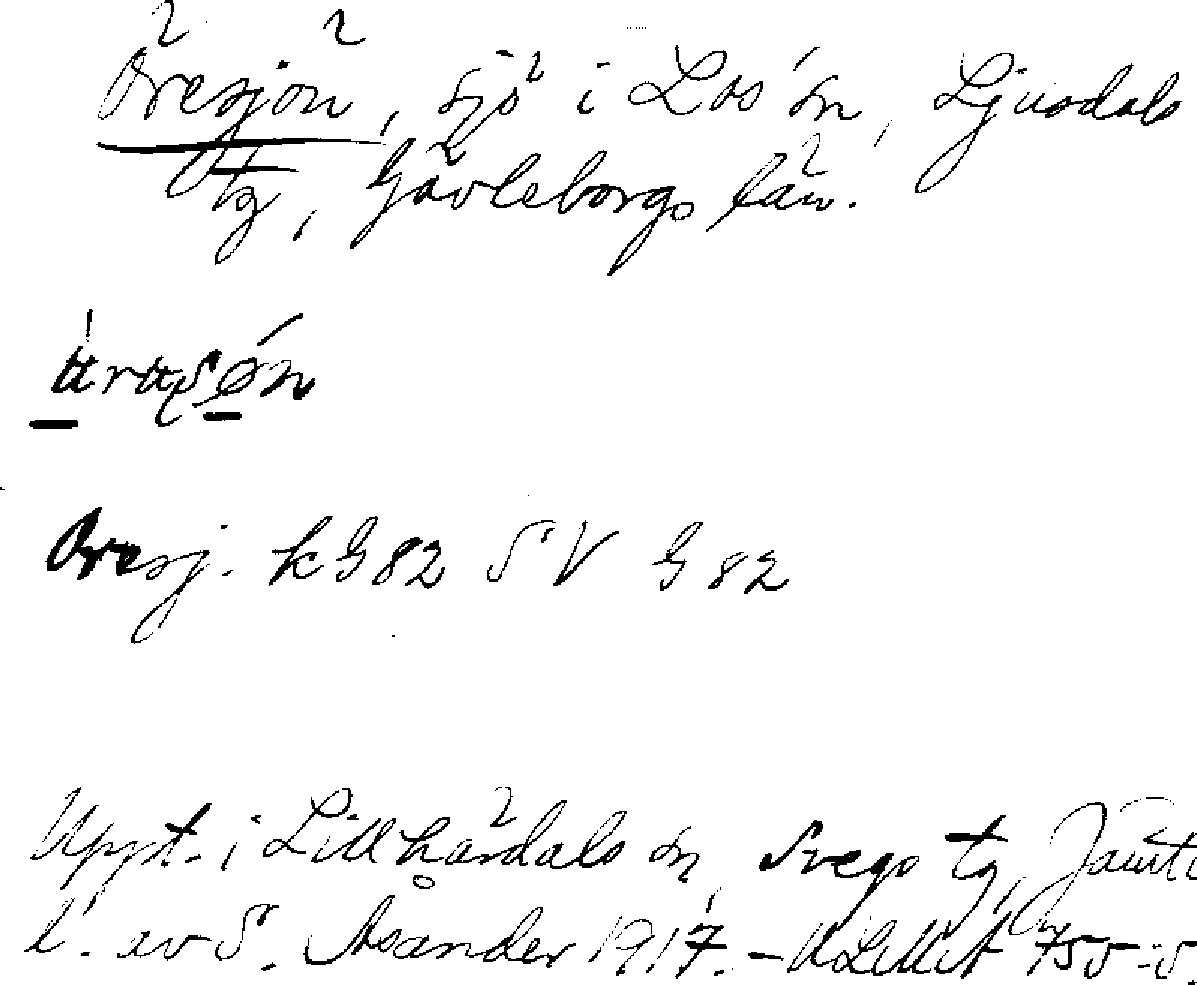 Öresjön, sjö i Los sn, Ljusdals
tg, Gävleborgs län.
Öresj. kG82 SV G82
Uppt. i Lillhärdals sn, Svegs tg, Jämtl
l. av S. Åsander 1917. – ULMA 755:5.